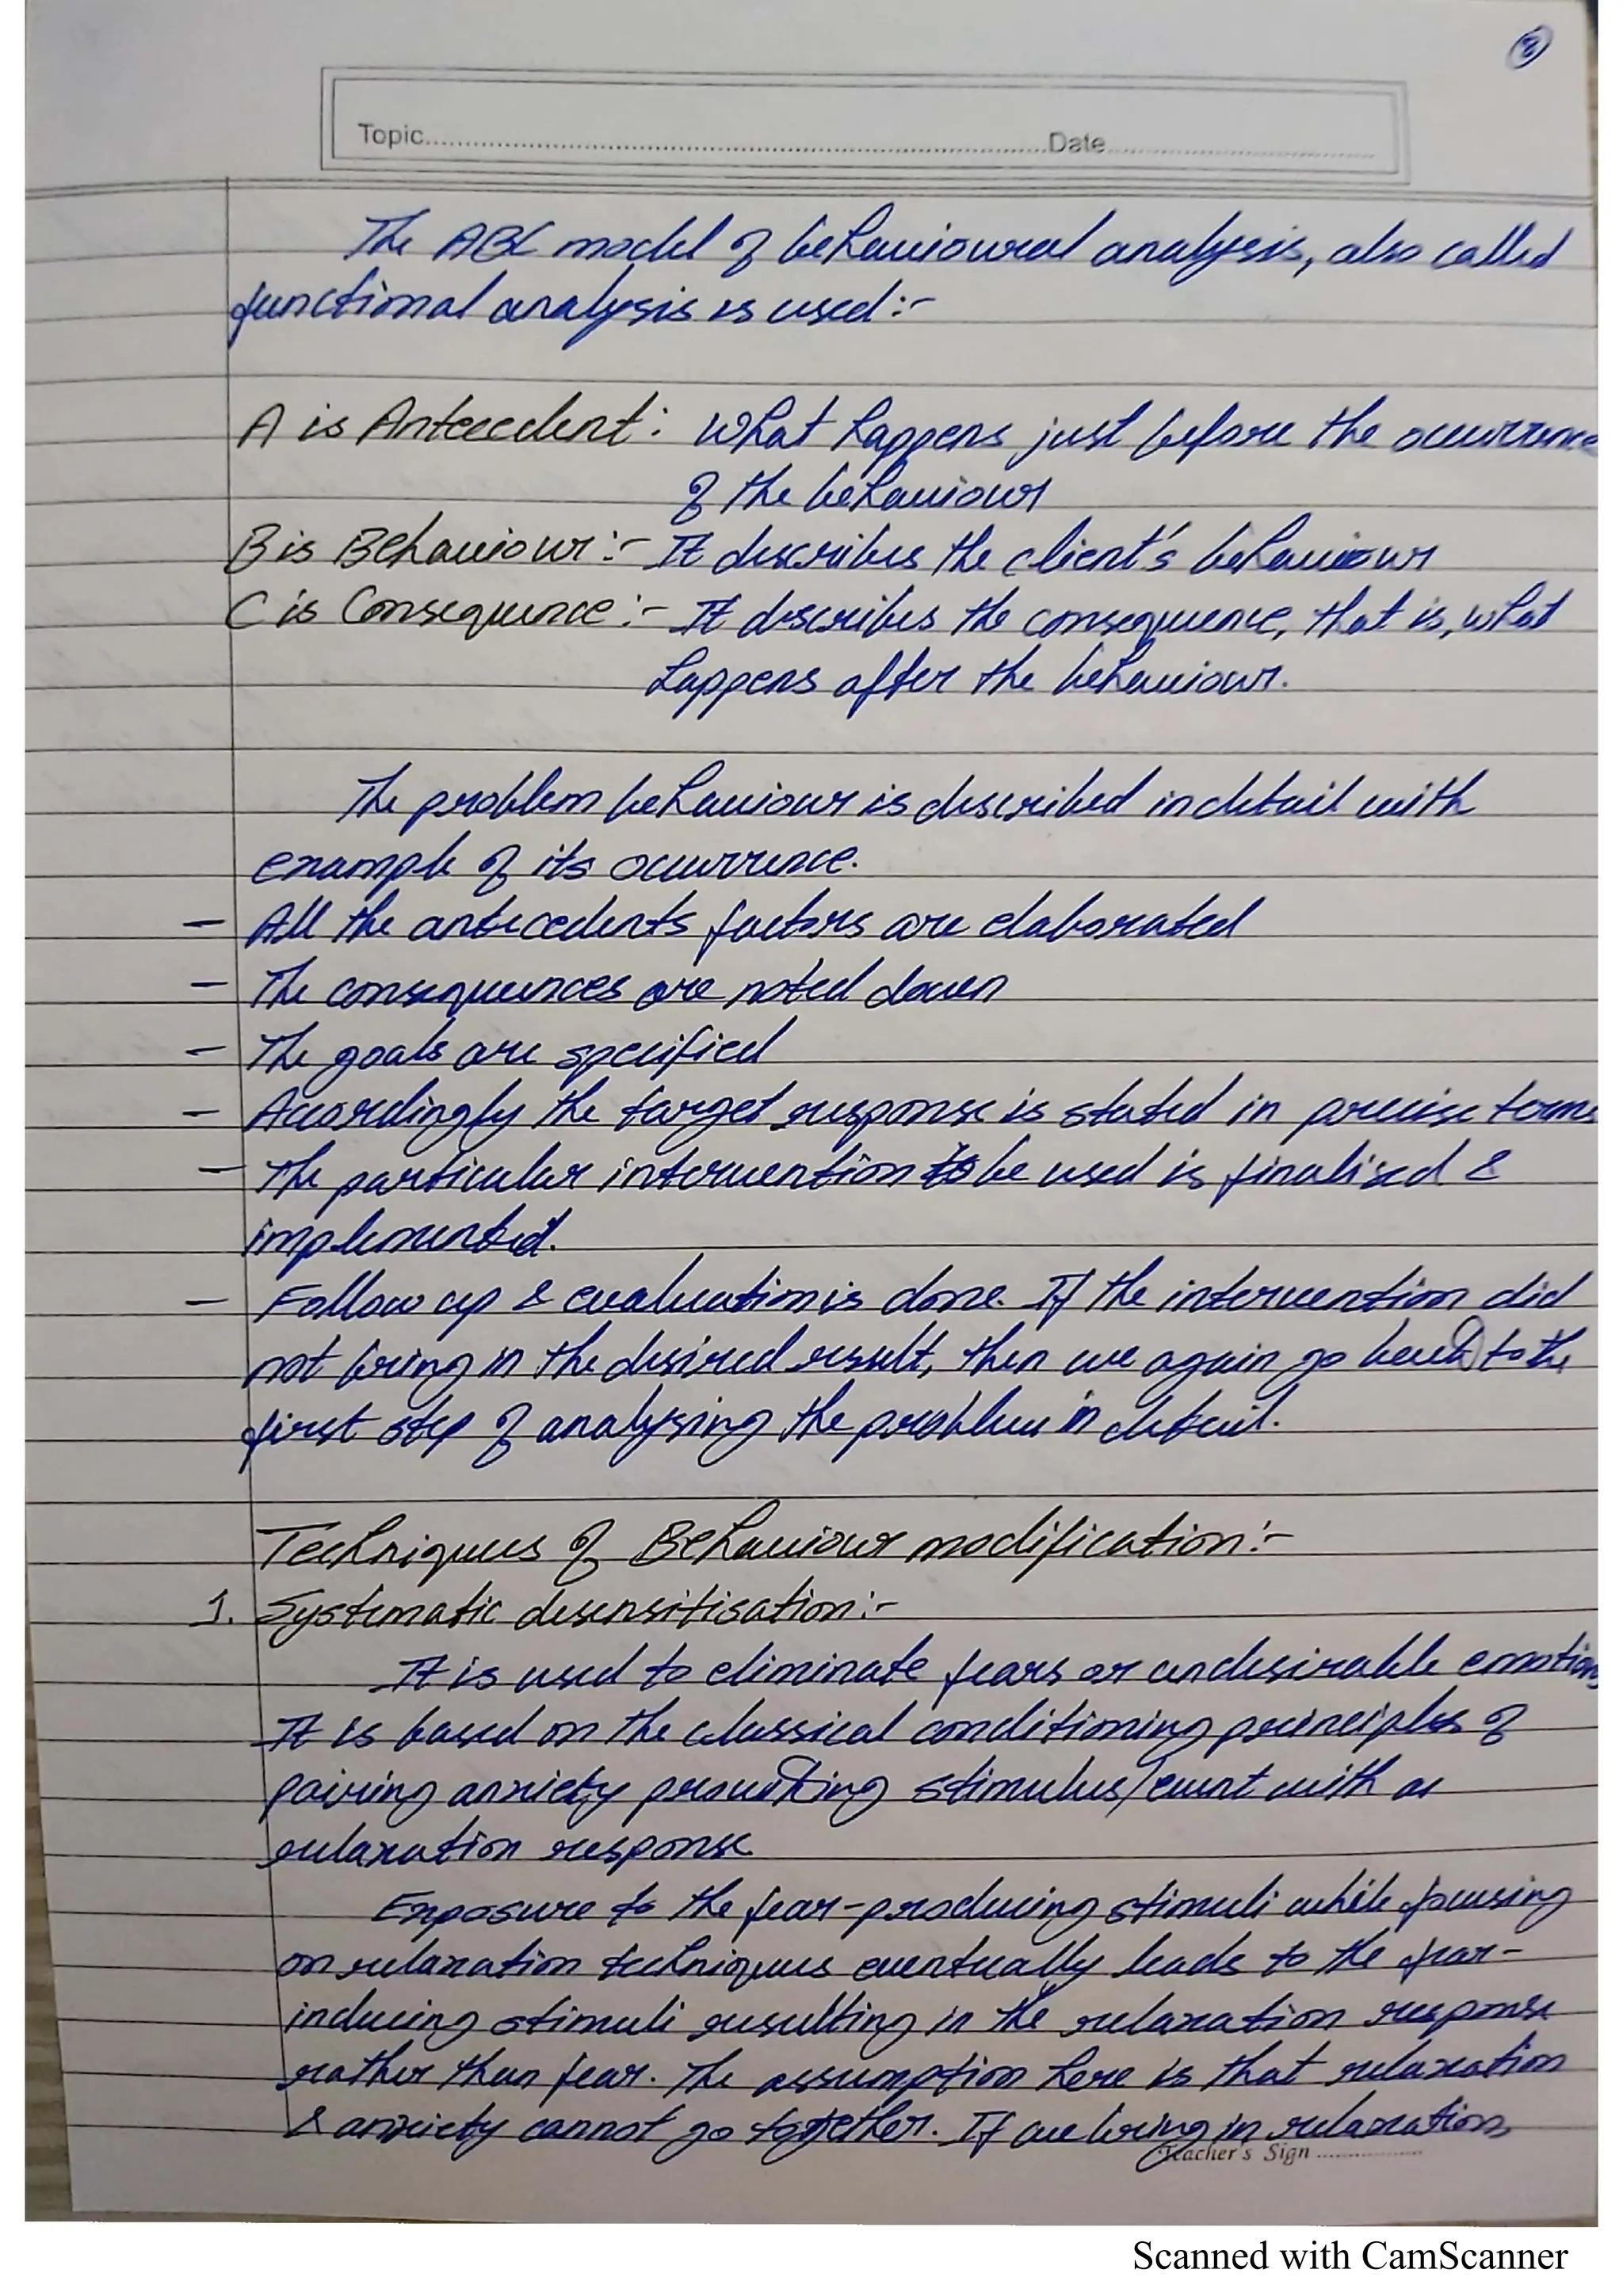 2
Topic..........Date..........
The ABC model of behavioural analysis, also called
functional analysis is used:-
A is Antecedent: What happens just before the occurrence
of the behaviour
B is Behaviour:- It describes the client's behaviour
C is Consequence:- It describes the consequence, that is, what
happens after the behaviour.
The problem behaviour is described in detail with
example of its occurrence.
- All the antecedents factors are elaborated
- The consequences are noted down
- The goals are specified
- Accordingly the target response is stated in precise terms
- The particular intervention to be used is finalised &
implemented.
- Follow up & evaluation is done. If the intervention did
not bring in the desired result, then we again go back to the
first step of analysing the problem in detail.
Techniques of Behaviour modification:-
1. Systematic desensitisation:-
It is used to eliminate fears or undesirable emotions
It is based on the classical conditioning principles of
pairing anxiety provoking stimulus/event with a
relaxation response
Exposure to the fear-producing stimuli while focusing
on relaxation techniques eventually leads to the fear-
inducing stimuli resulting in the relaxation response
rather than fear. The assumption here is that relaxation
& anxiety cannot go together. If we bring in relaxation,
Teacher's Sign ..........
Scanned with CamScanner